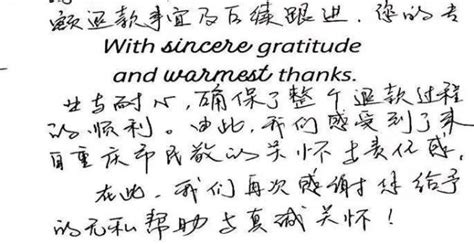 额退款事宜及后续跟进,您的专
With sincere gratitude
and warmest thanks.
业与耐心,确保了整个退款过程
的顺利。由此,我们感受到了来
自重庆市民政的关怀与责任感。
在此,我们再次感谢您给予
的无私帮助与真诚关怀!